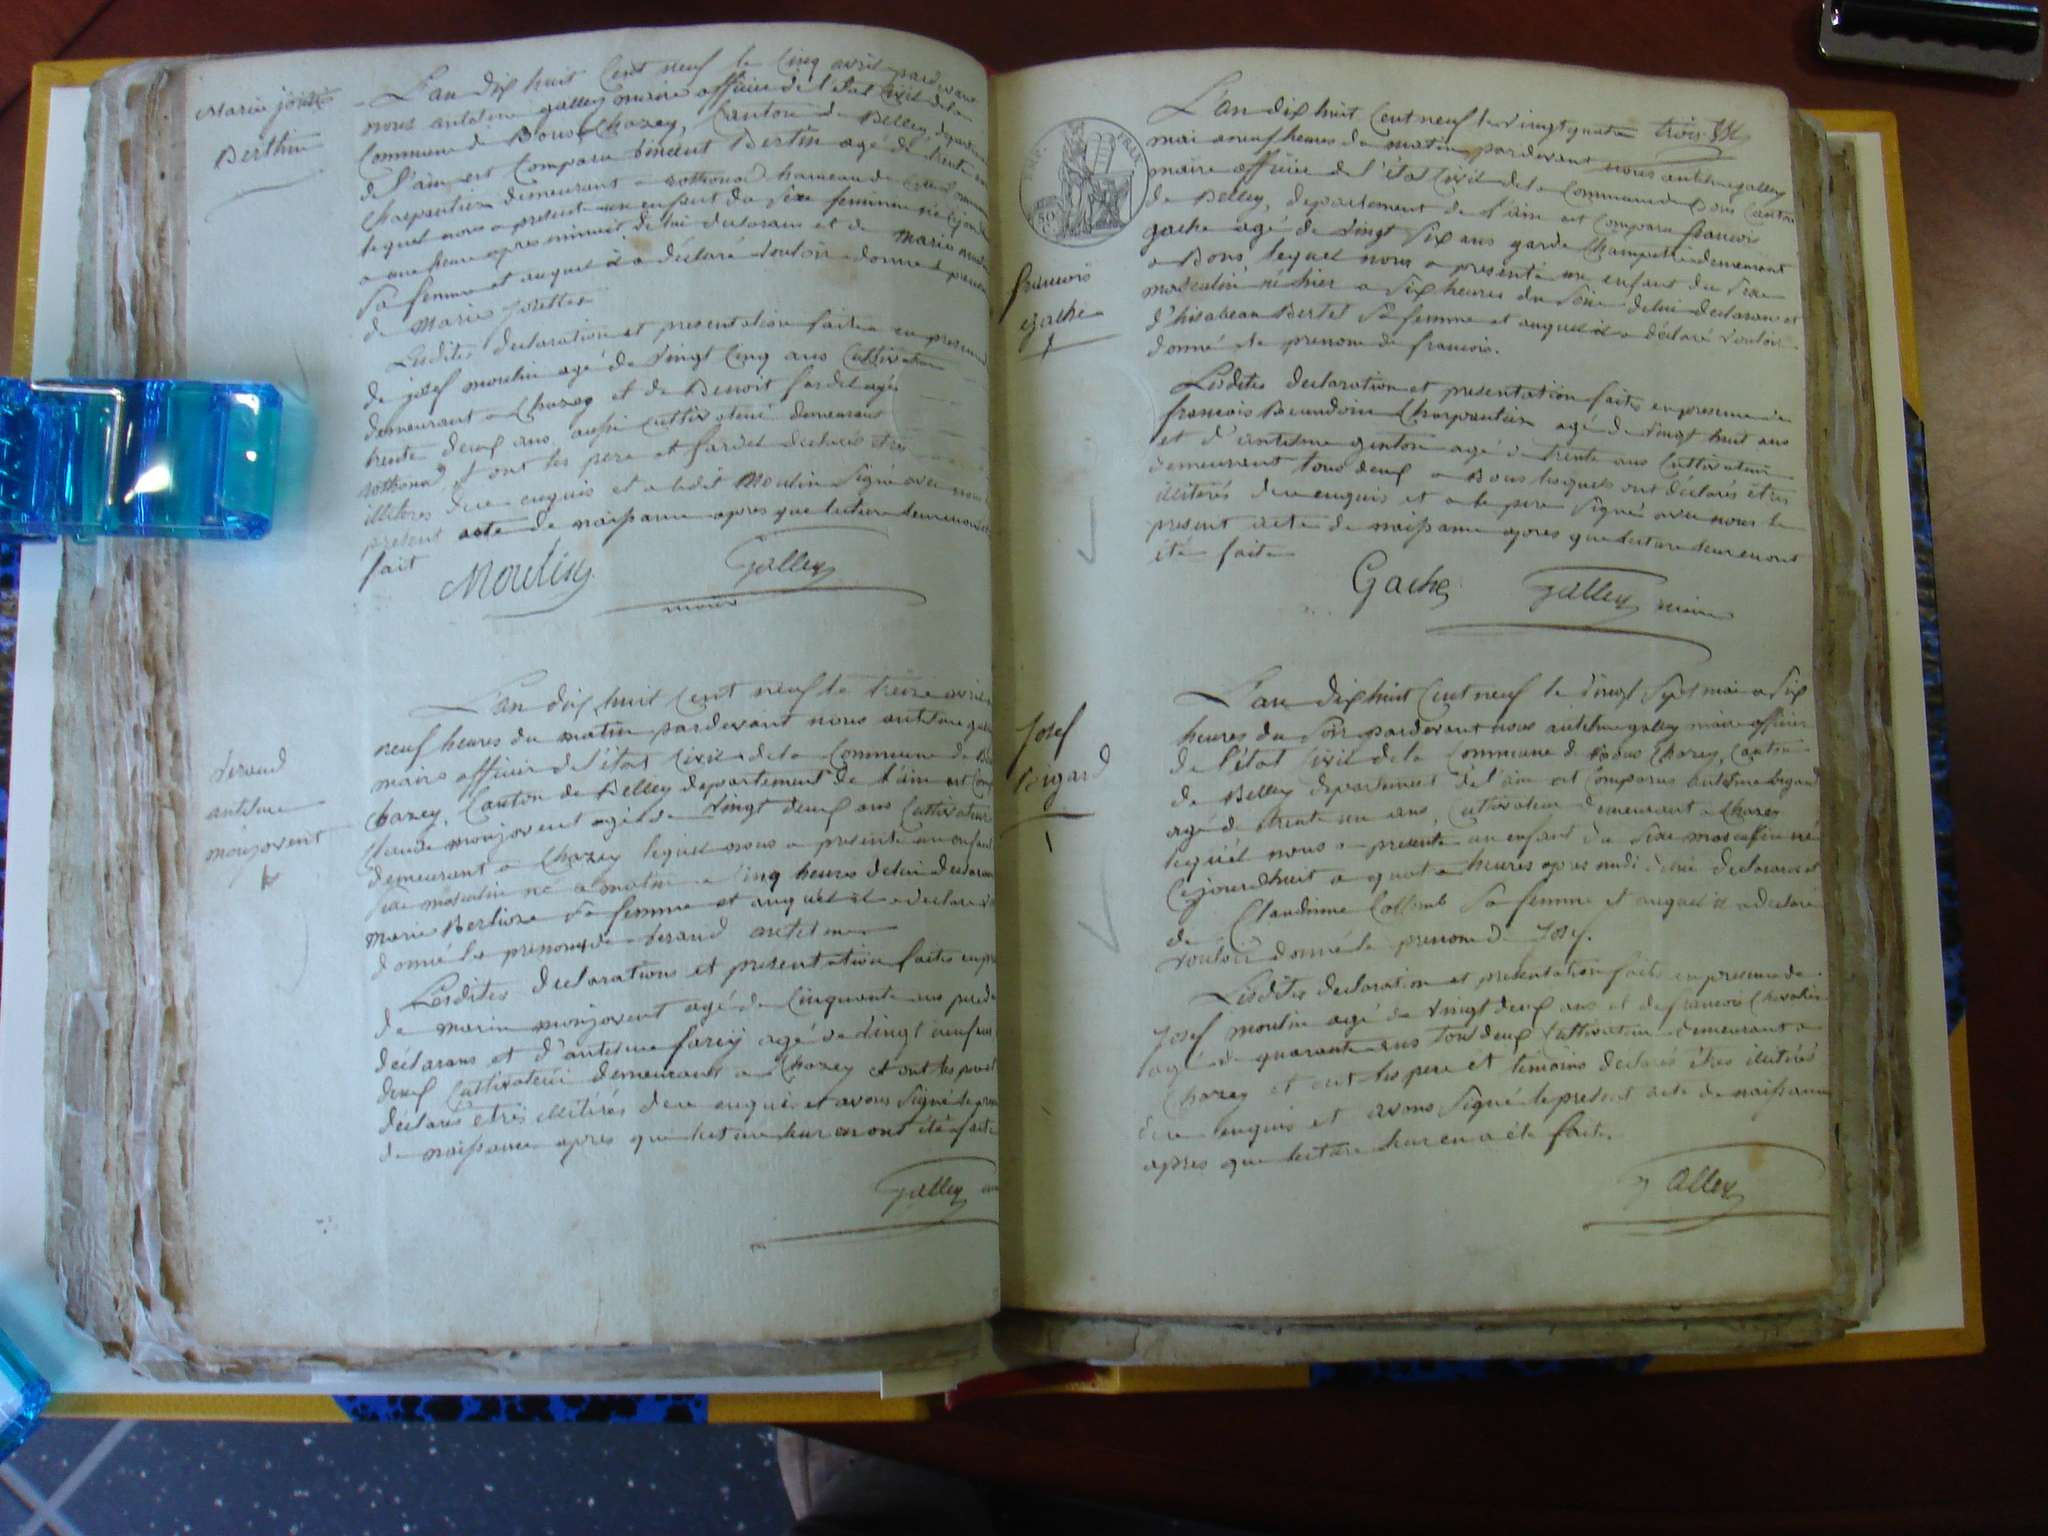 Marie josette
Berthin
L'an dix huit Cent neuf le Cinq avril pardevant
nous antelme galley maire officier de l'état Civil de la
Commune de Bons Chazey, Canton de Belley, departement
de l'ain est Comparu Vincent Bertin agé de trente
Charpentier demeurant a rothonod hameau de
lequel nous a presenté un enfant du sexe feminin né
a une heure apres minuit de lui declarant et de Marie
sa femme et auquel il a déclaré vouloir donner le prenom
de Marie Josettes
Lesdites declaration et presentation faites en presence
de josef moulin agé de vingt Cinq ans Cultivateur
demeurant a Chazey et de Benoit fardel agé
trente deux ans, aussi Cultivateur demeurant
rothonod, et ont les pere et fardel declarés etres
illiteres de ce enquis et a ledit Moulin Signé avec nous
present acte de naissance apres que lecture leur en ont
fait
Moulin
galley
maire
L'an dix huit Cent neuf le treize avril
neuf heures du matin pardevant nous antelme galley
maire officier de l'état Civil de la Commune de Bons
Chazey, Canton de Belley departement de l'ain est Comp
Claude monjovent agé de vingt deux ans Cultivateur
demeurant a Chazey lequel nous a presenté un enfant
sexe masculin né a matin a Cinq heures de lui declarant
marie Berlioz sa femme et auquel il a declaré
donné les prenoms de veraud antelme
veraud
antelme
monjovent
Lesdites declarations et presentation faites en pre
de marin monjovent agé de Cinquante ans
déclarans et d'antelme farcy agé de vingt neuf
deux Cultivateur demeurans a Chazey et ont les
declarés etres illitérés de ce enquis et avons Signé le pre
de naissance apres que lecture leur en ont été faite
galley
L'an dix huit Cent neuf le vingt quatre trois
mai a neuf heures du matin pardevant nous antelme galley
maire officier de l'état Civil de la Commune de Bons Canton
de Belley, departement de l'ain est Comparu francois
gache agé de vingt six ans garde Champetre demeurant
a Bons lequel nous a presenté un enfant du sexe
masculin né hier a six heures du soir de lui declarant et
d'hisabeau Bertet sa femme et auquel il a déclaré vouloir
donné le prenom de francois.
francois
gache
Lesdites declaration et presentation faites en presence de
francois Beaudoin Charpentier agé de vingt huit ans
et d'antelme ginton agé de trente ans Cultivateur
demeurant tous deux a Bons lesquels ont déclarés etres
illitérés de ce enquis et a le pere Signé avec nous le
present acte de naissance apres que lecture leur en ont
été faite
Gache
galley maire
L'an dix huit Cent neuf le vingt sept mai a six
heures du soir pardevant nous antelme galley maire officier
de l'état Civil de la Commune de Bons Chazey, Canton
de Belley departement de l'ain est Comparus antelme bigard
agé de trente un ans, Cultivateur demeurant a Chazey
lequel nous a presenté un enfant du sexe masculin né
Cejourdhuit a quatre heures apres midi de lui declarant et
de Claudinne Collomb sa femme et auquel il a declaré
vouloir donné le prenom de Josef.
Josef
Bigard
Lesdites declaration et presentation faites en presence de
Josef moulin agé de vingt deux ans et de francois Chevalier
agé de quarante ans tous deux Cultivateur demeurant a
Chazey et ont les pere et temoins declarés êtres illitérés
de ce enquis et avons Signé le present acte de naissance
apres que lecture leur en a été faite.
galley